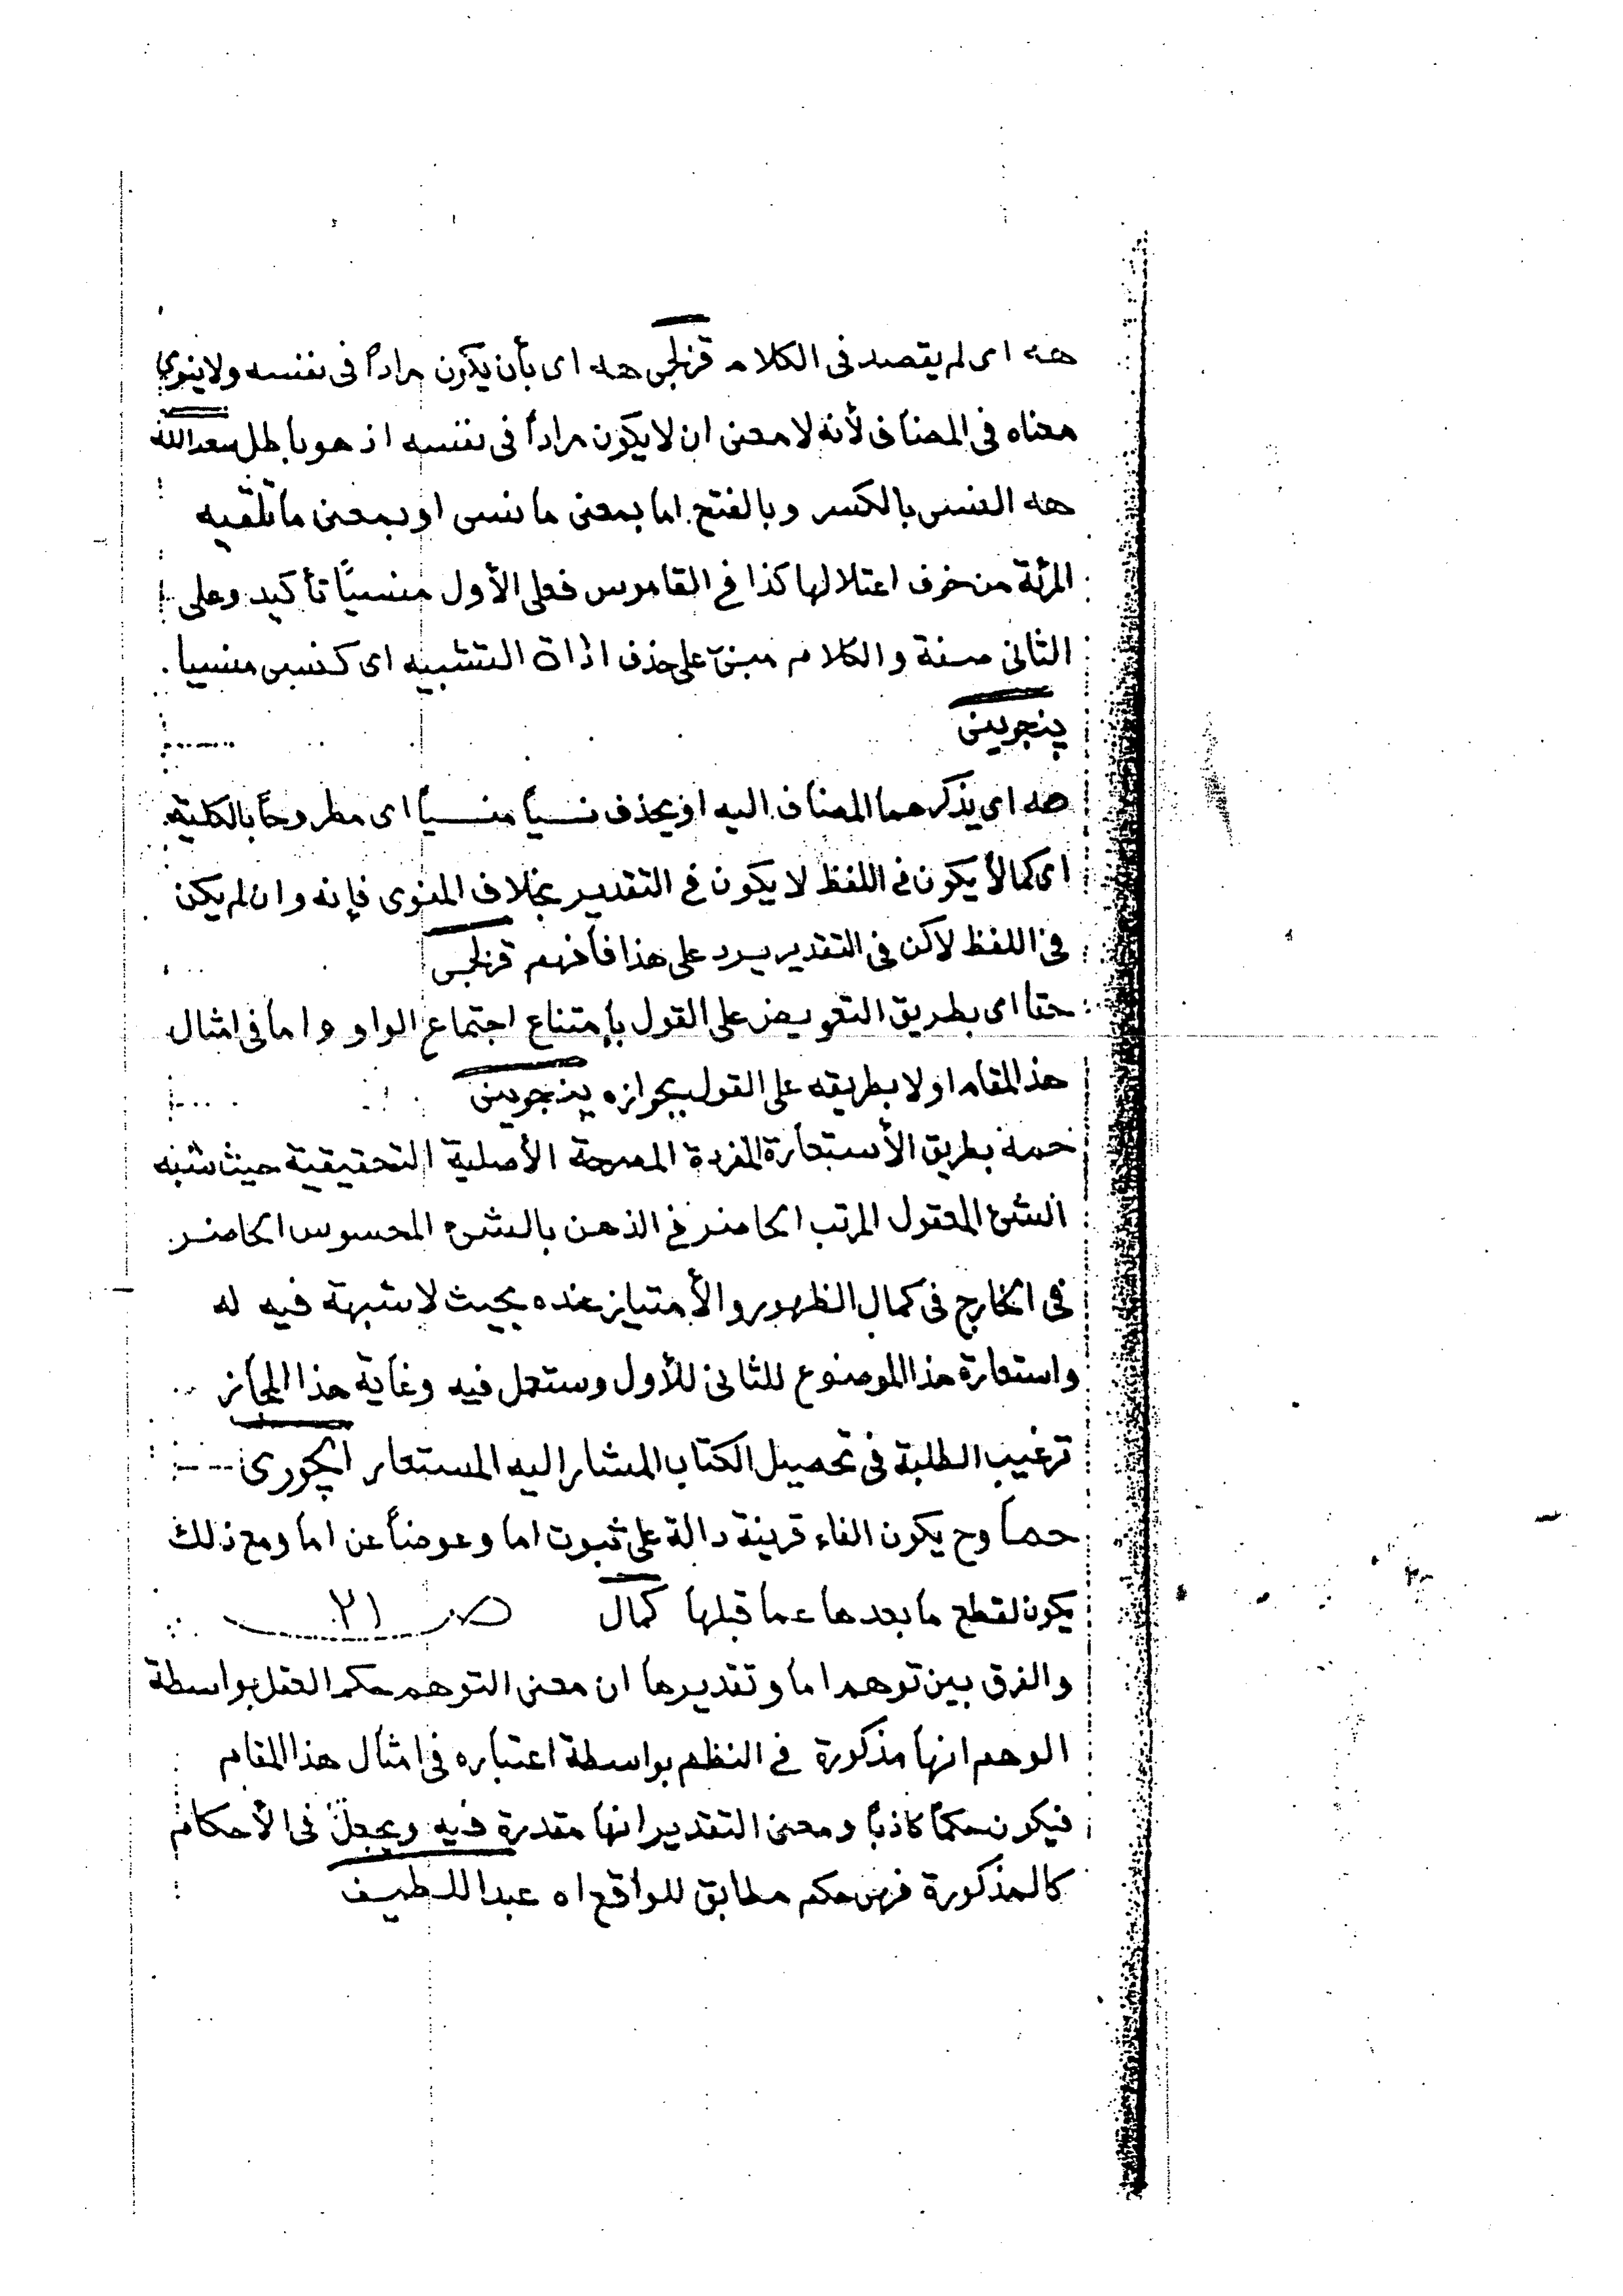 هه اى لم يقصد فى الكلام قزلجى هه اى بأن يكون مراداً فى نفسه ولا ينوى
معناه فى المضاف لأنه لا معنى ان لا يكون مراداً فى نفسه اذ هو باطل سعد الله
هه النسى بالكسر وبالفتح اما بمعنى ما نسى او بمعنى ما تلقيه
المرئة من خرف اعتلالها كذا فى القاموس فعلى الأول منسيًا تأكيد وعلى
الثانى صفة والكلام مبنى على حذف اداة التشبيه اى كنسى منسيا.
پنجوينى
هه اى يذكر هما المضاف اليه او يحذف نسياً منسياً اى مطروحاً بالكلية
اى كما لا يكون فى اللفظ لا يكون فى التقدير بخلاف المنوى فإنه وان لم يكن
فى اللفظ لاكن فى التقدير يرد على هذا فافهم قزلجى
حقا اى بطريق التعويض على القول بإمتناع اجتماع الواو واما فى امثال
هذ المقام او لا بطريقه على القول بجوازه پنجوينى
حمه بطريق الأستعارة المفردة المصرحة الأصلية التحقيقية حيث شبه
الشئ المعقول المرتب الحاضر فى الذهن بالشئ المحسوس الحاضر
فى الخارج فى كمال الظهور والأمتياز عنده بحيث لا شبهة فيه له
واستعارة هذا الموضوع للثانى للأول وستعمل فيه وغاية هذا المجاز
ترغيب الطلبة فى تحصيل الكتاب المشار اليه المستعار الچورى
حما وح يكون الفاء قرينة دالة على ثبوت اما وعوضاً عن اما ومع ذلك
يكون لقطع ما بعدها عما قبلها كمال صـ ٢١
والفرق بين توهم اما وتقديرها ان معنى التوهم حكم العقل بواسطة
الوهم انها مذكورة فى النظم بواسطة اعتباره فى امثال هذ المقام
فيكون حكماً كاذباً ومعنى التقدير انها مقدرة فيه ويجعل فى الأحكام
كالمذكورة فهى حكم مطابق للواقع اه عبد اللطيف